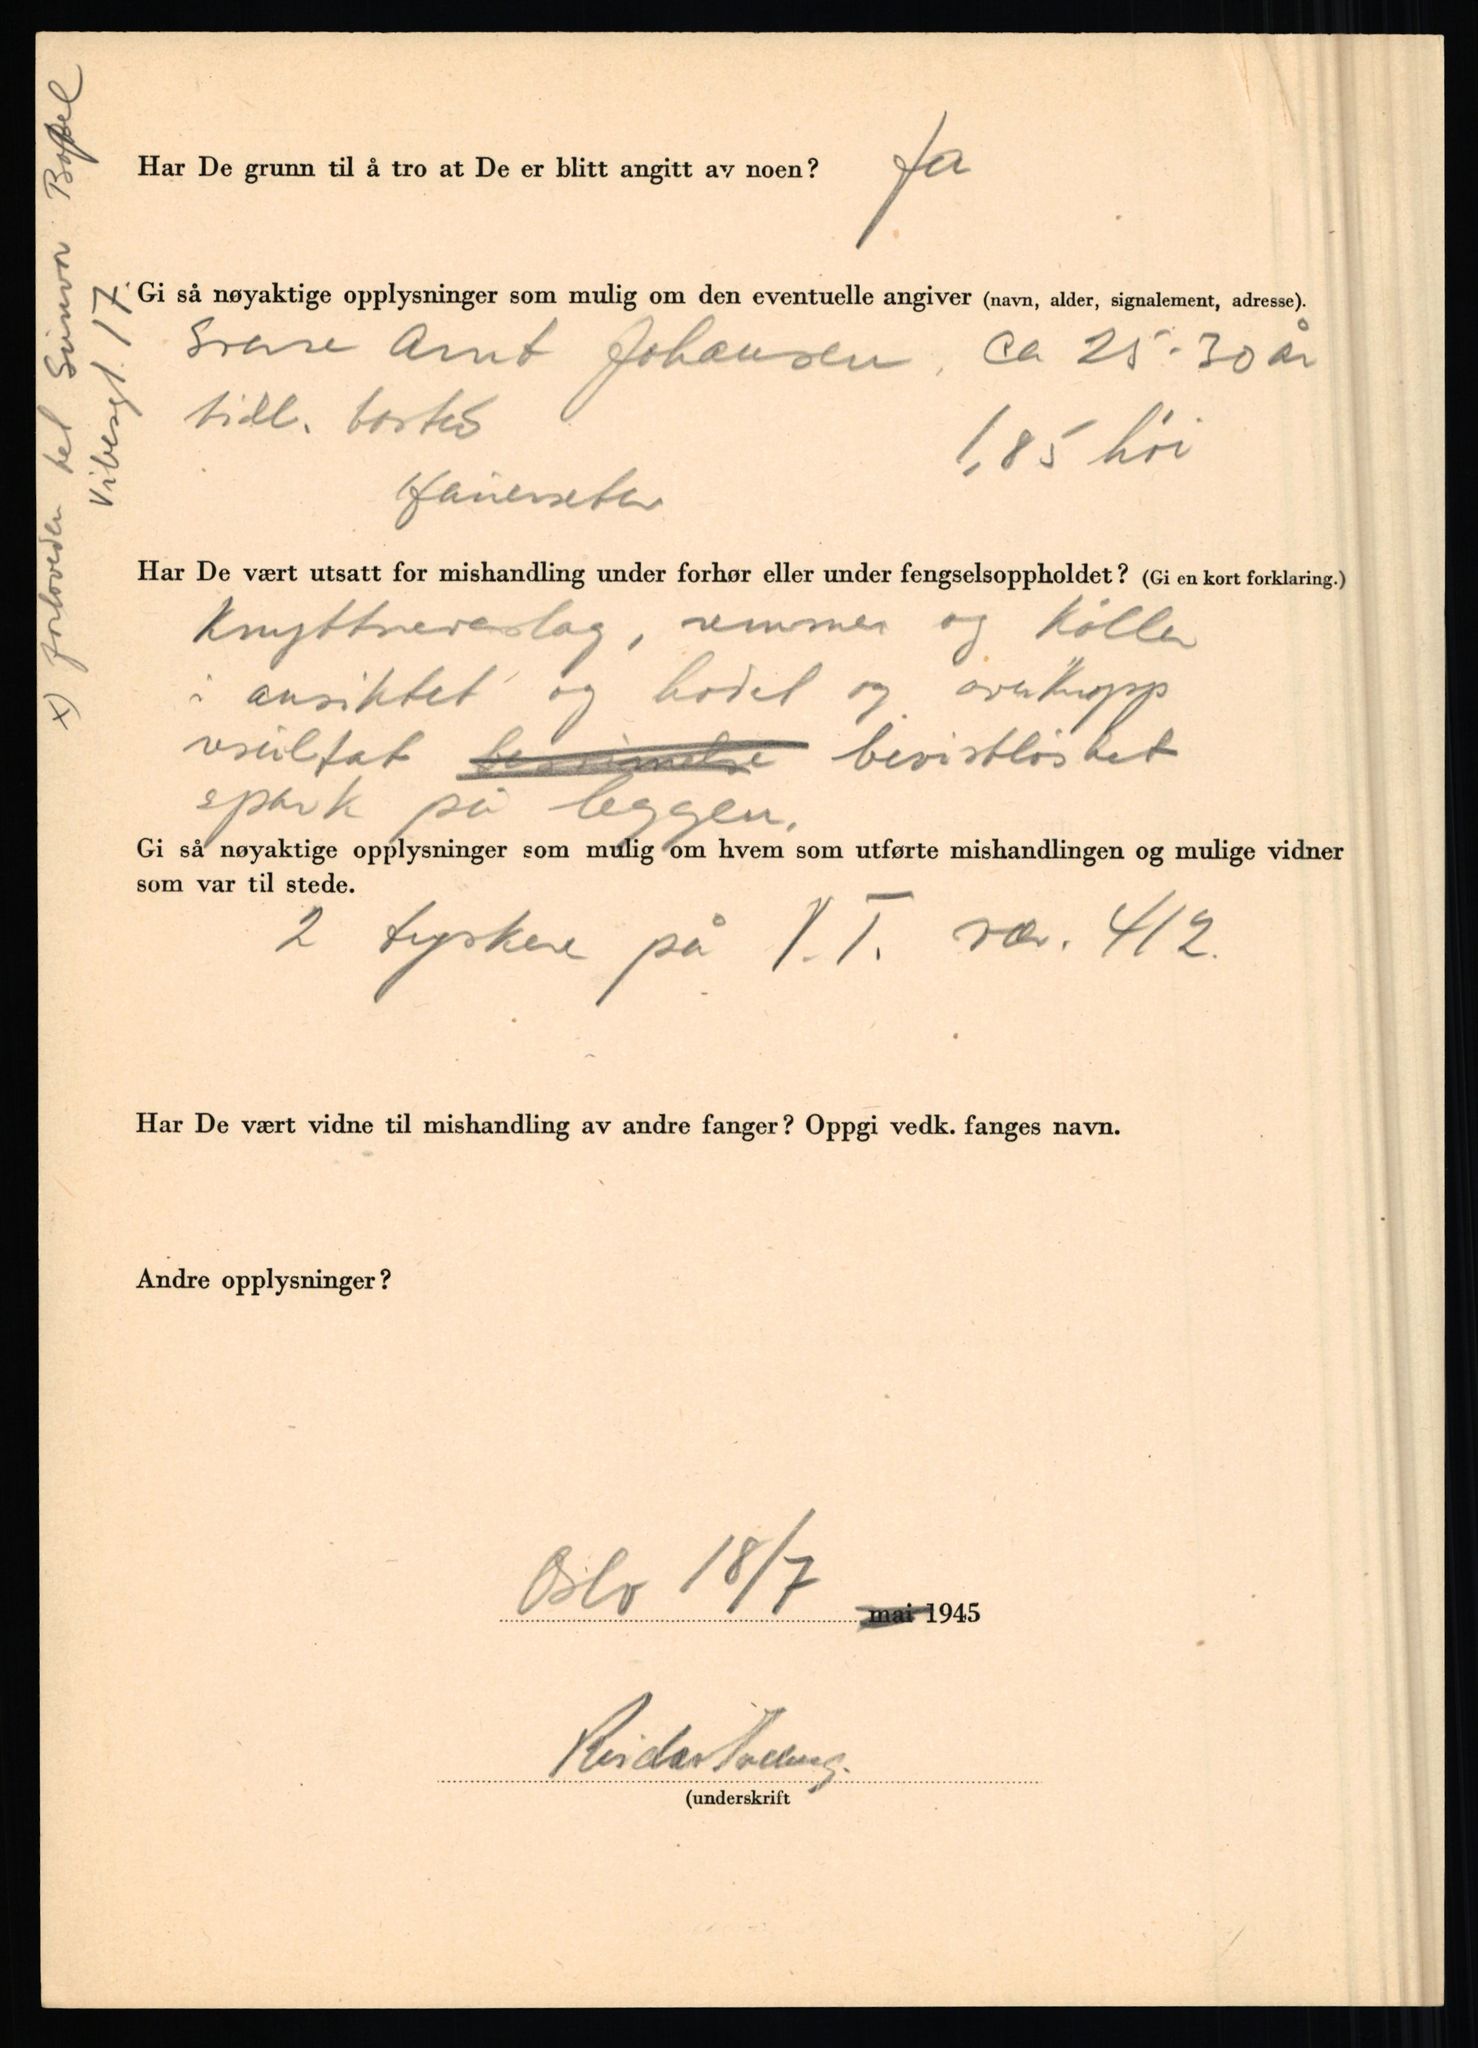 Har De grunn til å tro at De er blitt angitt av noen? Ja
Gi så nøyaktige opplysninger som mulig om den eventuelle angiver (navn, alder, signalement, adresse).
Arnt Johansen, ca 25-30 år
tidl. bosted
1,85 høi
Har De vært utsatt for mishandling under forhør eller under fengselsoppholdet? (Gi en kort forklaring.)
Knyttneveslag, remmer og køller
i ansiktet og hodet og overkropp
resultat bevistløshet
spark på leggen.
Gi så nøyaktige opplysninger som mulig om hvem som utførte mishandlingen og mulige vidner
som var til stede.
2 tyskere på V.T. vær. 412.
Har De vært vidne til mishandling av andre fanger? Oppgi vedk. fanges navn.
Andre opplysninger?
Oslo 18/7 mai 1945
Reidar
(underskrift
x) forloveden het Sunvor
Vibesgt. 17.